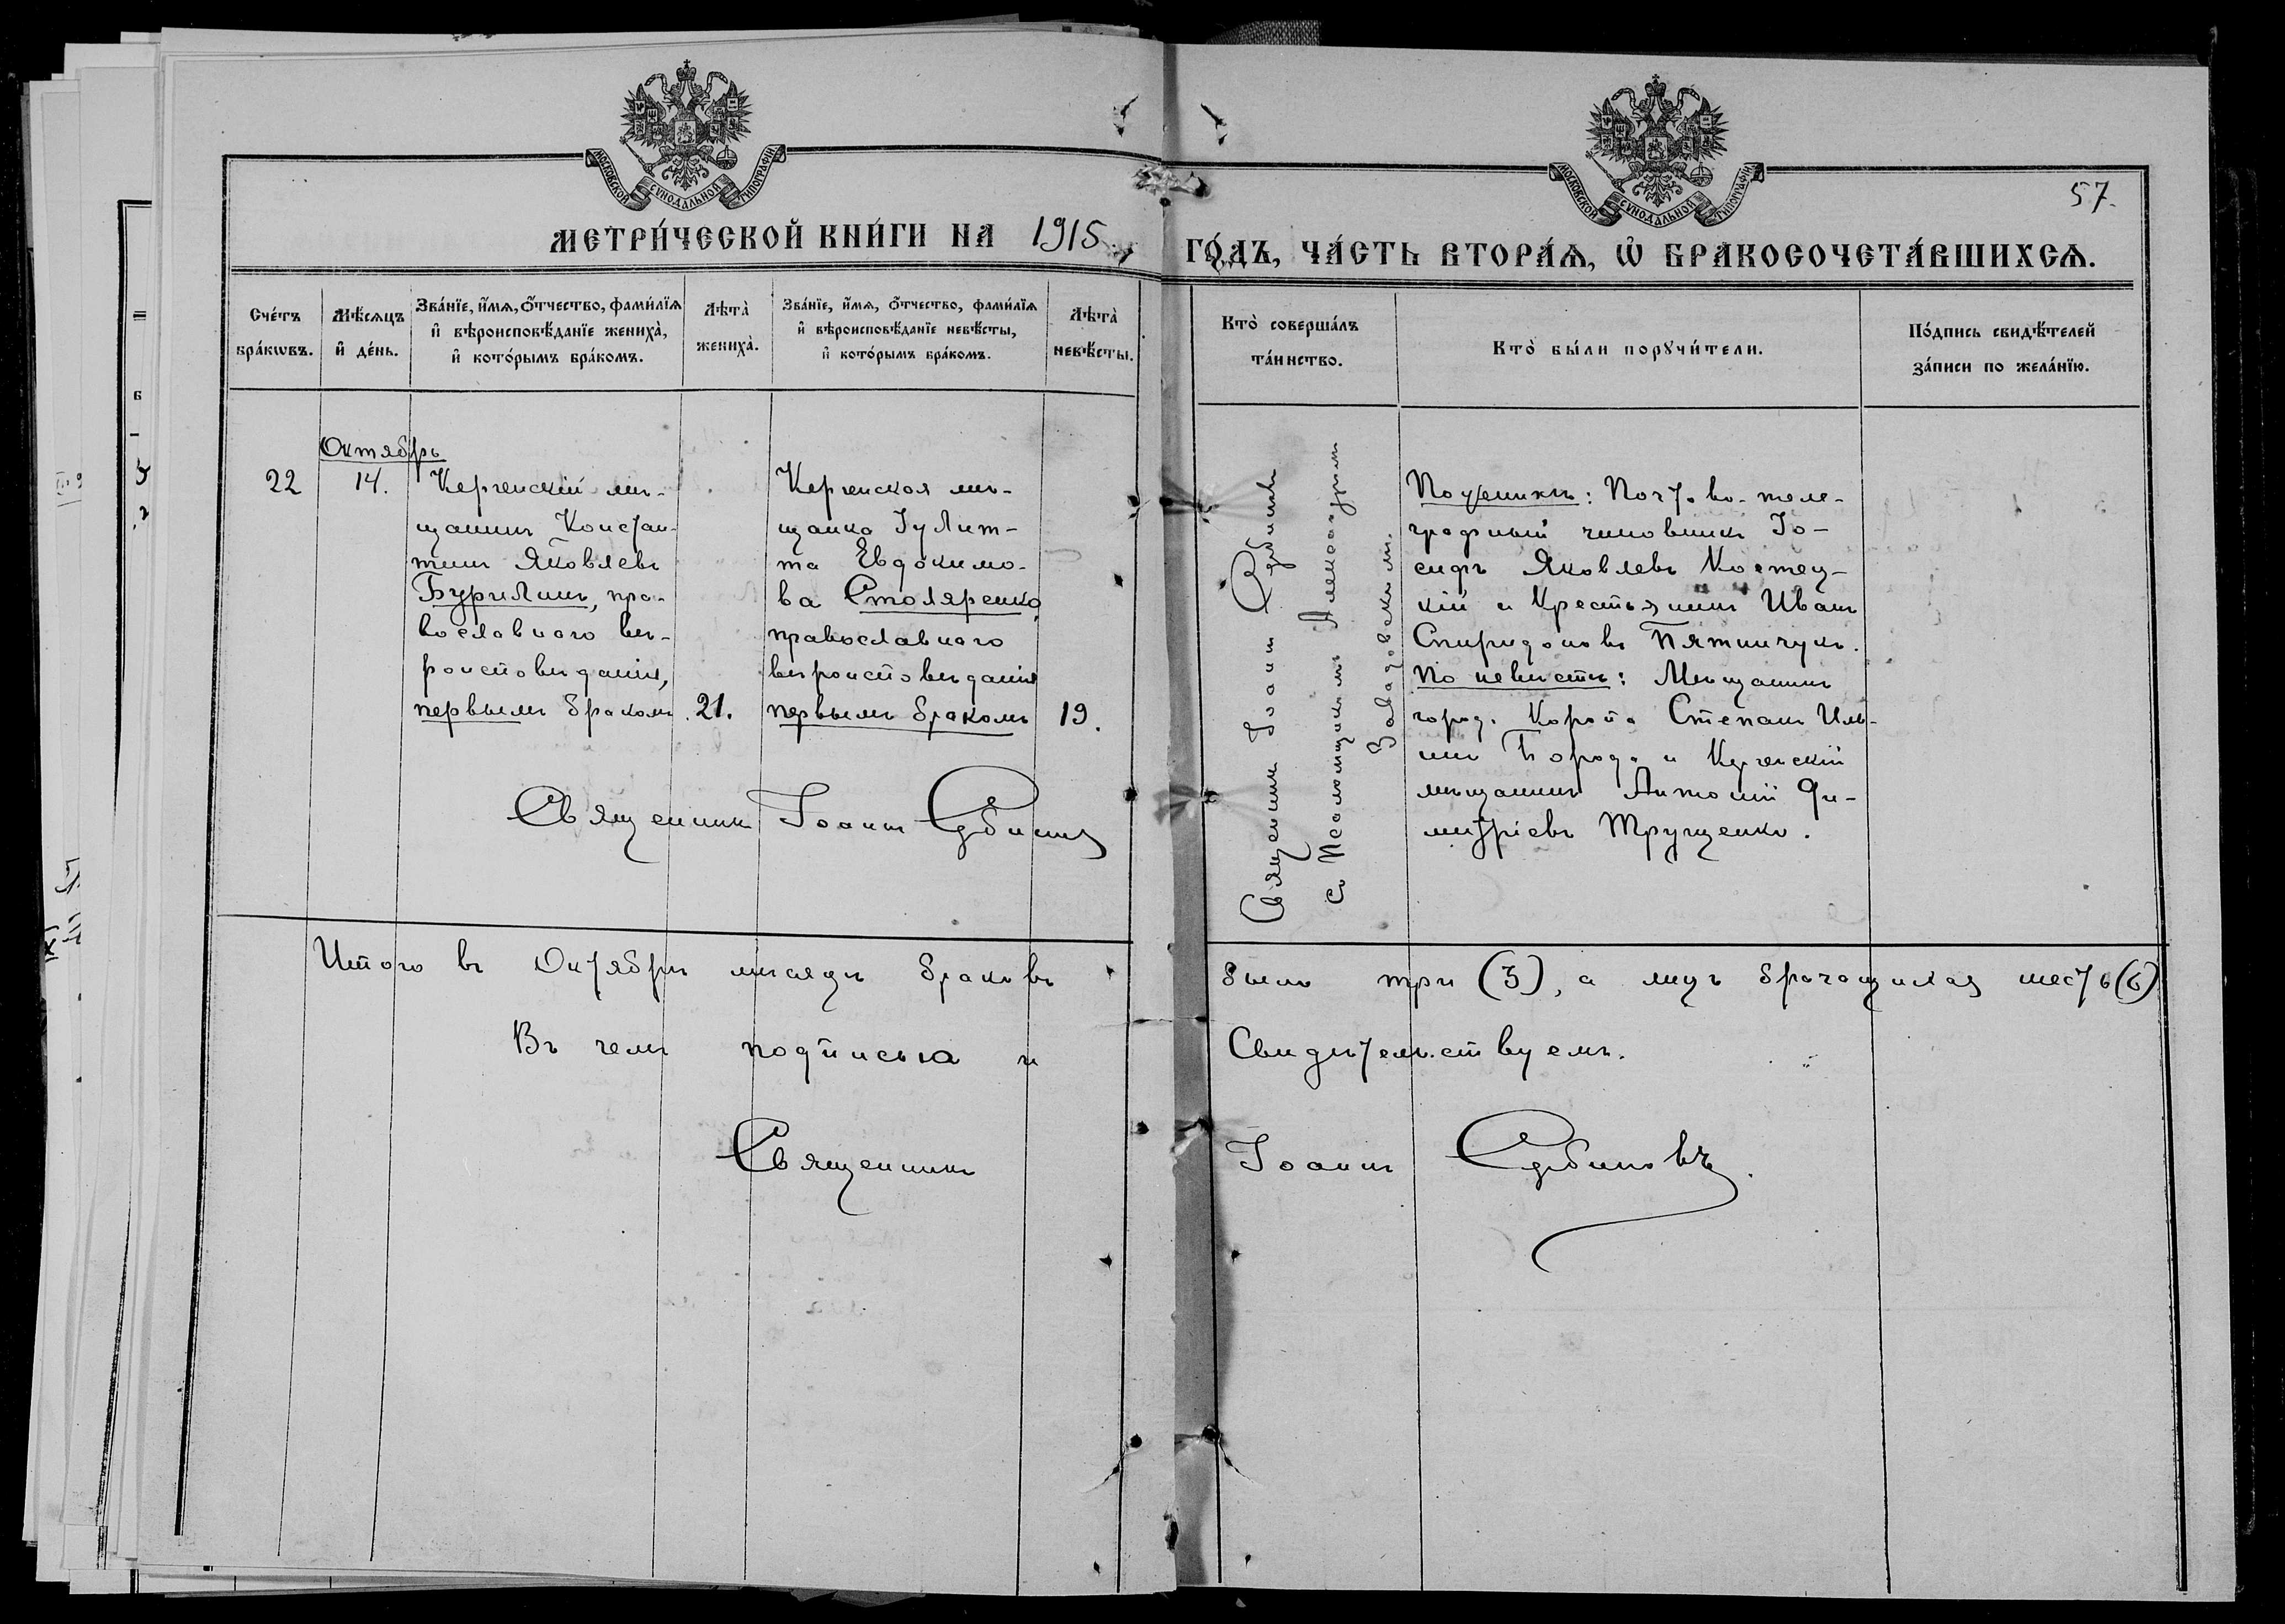 МОСКОВСКОЙ СѴНОДАЛЬНОЙ ТИПОГРАФІИ
МОСКОВСКОЙ СѴНОДАЛЬНОЙ ТИПОГРАФІИ
57.
МЕТРИ́ЧЕСКОЙ КНИ́ГИ НА 1915
ГО́ДЪ, ЧА́СТЬ ВТОРА́Ѧ, Ѽ БРАКОСОЧЕТА́ВШИХСѦ.
Сче́тъ
бра́кѡвъ.
Мѣ́сѧцъ
и҆ де́нь.
Зва́нїе, и҆́мѧ, ѻ҆́тчество, фами́лїѧ
и҆ вѣроисповѣ́данїе жениха̀,
и҆ кото́рымъ бра́комъ.
Лѣ́та̀
жениха̀.
Зва́нїе, и҆́мѧ, ѻ҆́тчество, фами́лїѧ
и҆ вѣроисповѣ́данїе невѣ́сты,
и҆ кото́рымъ бра́комъ.
Лѣ́та̀
невѣ́сты.
Кто̀ соверша́лъ
та́инство.
Кто̀ бы́ли порꙋчи́тели.
По́дпись свидѣ́телей
за́писи по жела́нїю.
Октябрь
22
14.
Керченскій мѣ-
щанинъ Констан-
тинъ Яковлевъ
Бурилинъ, пра-
вославнаго вѣ-
роисповѣданія,
первымъ бракомъ
21.
Керченская мѣ-
щанка Іулит-
та Евдокимо-
ва Столяренко,
православнаго
вѣроисповѣданія
первымъ бракомъ
19.
Священникъ Іоаннъ
Священникъ Іоаннъ
съ Псаломщикомъ Александромъ
Завадовскимъ.
По женихѣ: Почтово-теле-
графный чиновникъ Іо-
сифъ Яковлевъ Костец-
кій и Крестьянинъ Иванъ
Спиридоновъ Пятничукъ.
По невѣстѣ: Мѣщанинъ
город. Коропа Степанъ Иль-
инъ Борода и Керченскій
мѣщанинъ Антоній Ди-
митріевъ Трущенко.
Итого въ Октябрѣ мѣсяцѣ браковъ было три (3), а лицъ брачащихся шесть (6)
Въ чемъ подписью и Свидѣтельствуемъ.
Священникъ Іоаннъ